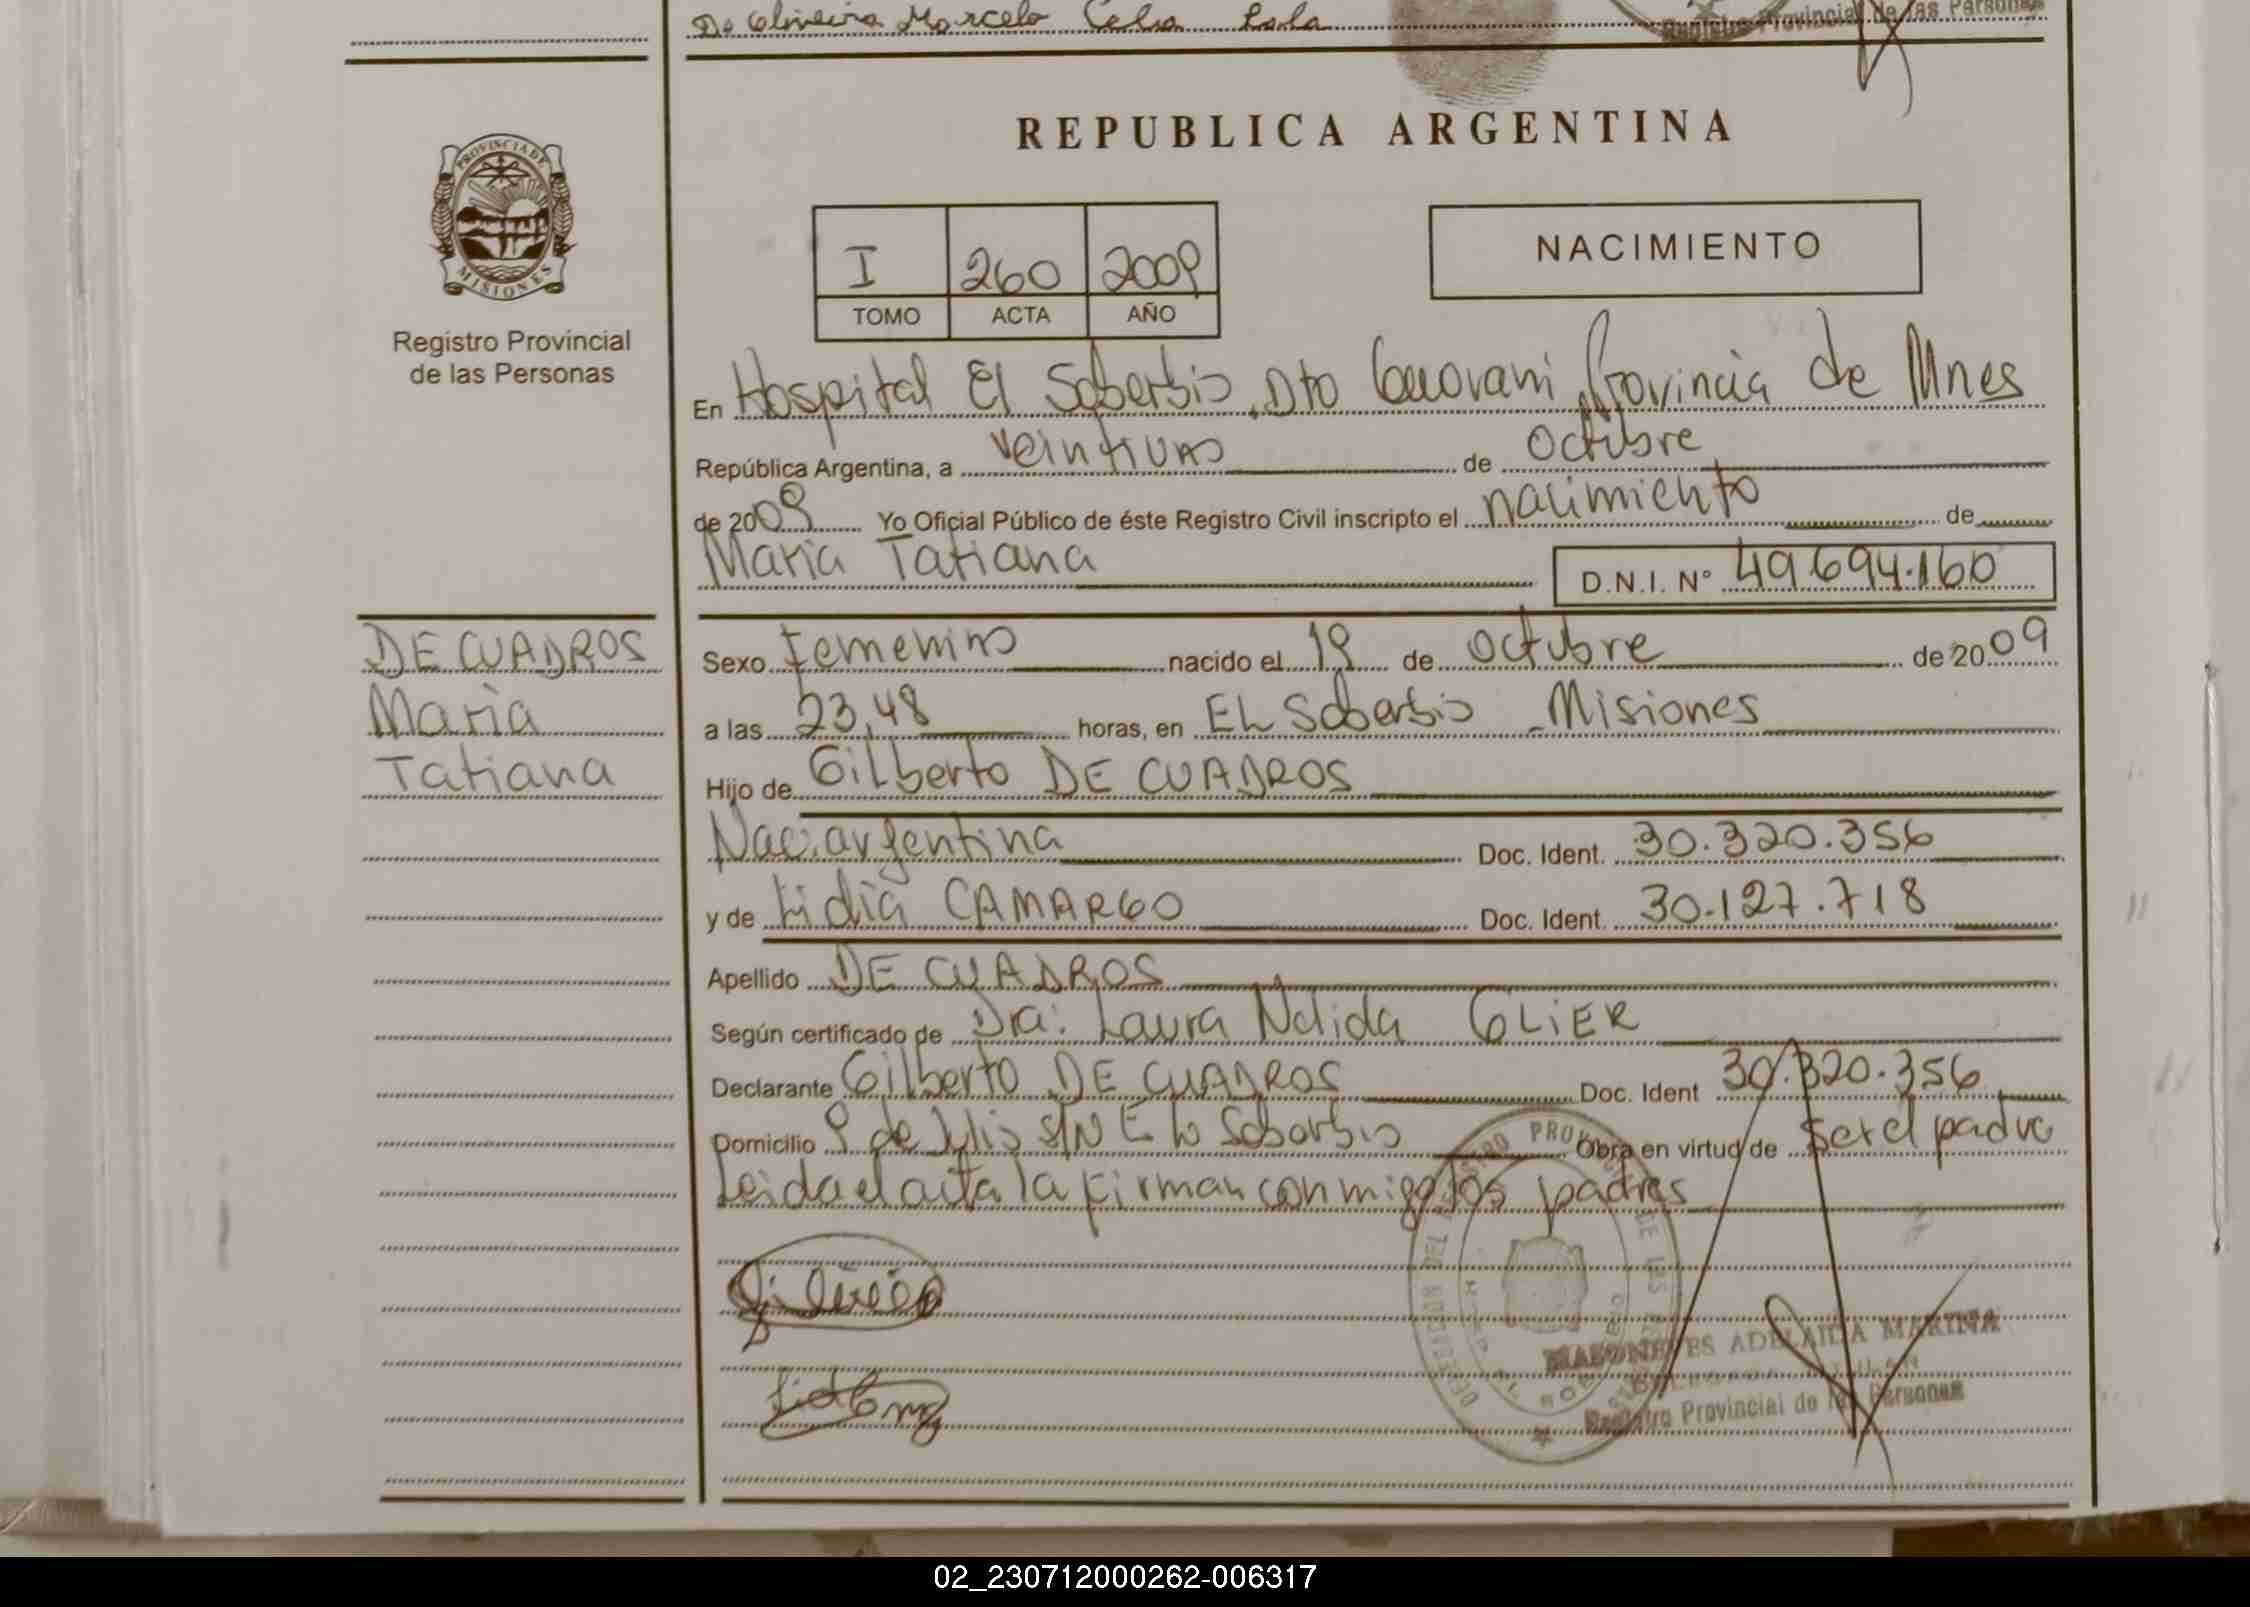 De Oliveira Marcelo Celso Lola
Registro Provincial de las Personas
PROVINCIA DE
MISIONES
Registro Provincial
de las Personas
REPUBLICA ARGENTINA
I 260 2009
TOMO ACTA AÑO
NACIMIENTO
En Hospital El Soberbio, Dto Guarani Provincia de Mnes
República Argentina, a veintiuno de Octubre
de 2009 Yo Oficial Público de éste Registro Civil inscripto el nacimiento de
Maria Tatiana D.N.I. N° 49.694.160
DE CUADROS
Maria
Tatiana
Sexo Femenino nacido el 19 de Octubre de 2009
a las 23,48 horas, en EL Soberbio - Misiones
Hijo de Gilberto DE CUADROS
Nac. argentina Doc. Ident. 30.320.356
y de Lidia CAMARGO Doc. Ident. 30.127.718
Apellido DE CUADROS
Según certificado de Dra: Laura Nelida GLIER
Declarante Gilberto DE CUADROS Doc. Ident 30.320.356
Domicilio 9 de Julio S/N EL Soberbio Obra en virtud de ser el padre
Leida el acta la firman conmigo los padres
DELEGACION DEL REGISTRO PROVINCIAL DE LAS PERSONAS
EL SOBERBIO
ADELAIDA MARINA
Registro Provincial de las Personas
02_230712000262-006317